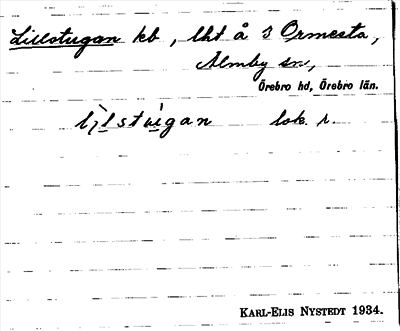 Lillstugan kb, lht å 3 Ormesta,
Almby sn,
Örebro hd, Örebro län.
lok. r.
KARL-ELIS NYSTEDT 1934.